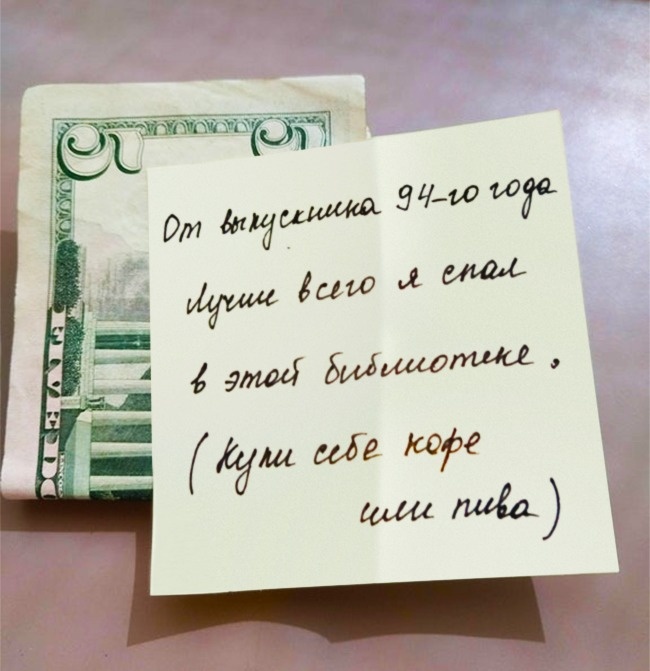 От выпускника 94-го года
Лучше всего я спал
в этой библиотеке.
(Купи себе кофе
или пива)
5
5